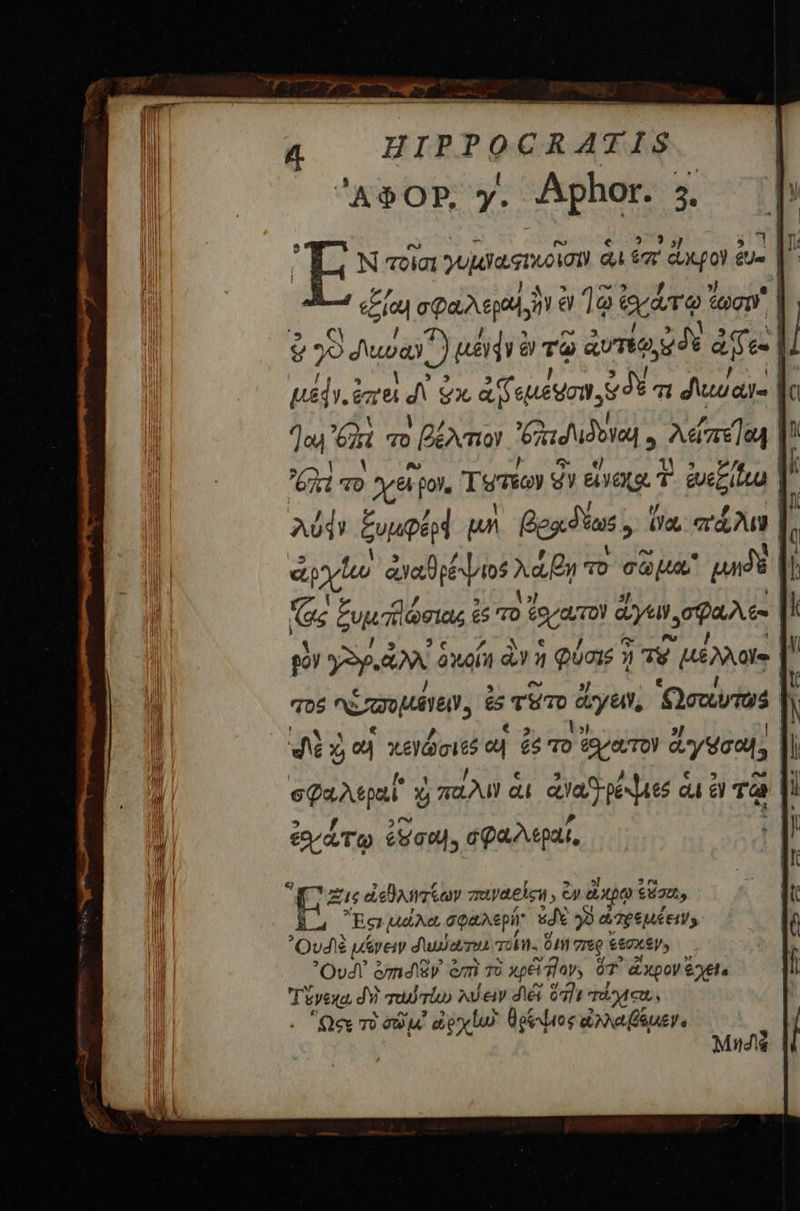 4 HIPPOCRATIS
ἈΦΟΡ. γ. Aphor. 3.
ἘΝ τοῖσι γυμναστικοῖσιν αἱ ἐπ' ἄκρον εὐ-
εξίαι σφαλεραὶ, ἢν ἐν τῷ ἐσχάτῳ ἔωσιν·
οὐ γὰρ δύνανται μένειν ἐν τῷ αὐτέῳ, οὐδὲ ἀτρε-
μέειν. ἐπεὶ δ' οὐκ ἀτρεμέουσιν, οὐδέ τι δύναν-
ται ἐπὶ τὸ βέλτιον ἐπιδιδόναι, λείπεται
ἐπὶ τὸ χεῖρον. Τουτέων οὖν εἵνεκα τ' εὐεξίην
λύειν ξυμφέρει μὴ βραδέως, ἵνα πάλιν
ἀρχὴν ἀναθρέψιος λάβῃ τὸ σῶμα· μηδὲ
τὰς ξυμπτώσιας ἐς τὸ ἔσχατον ἄγειν, σφαλε-
ρὸν γὰρ, ἀλλ' ὁκοίη ἂν ἡ φύσις ᾖ τοῦ μέλλον-
τος ὑπομένειν, ἐς τοῦτο ἄγειν. Ὡσαύτως
δὲ καὶ αἱ κενώσιες αἱ ἐς τὸ ἔσχατον ἄγουσαι,
σφαλεραί· καὶ πάλιν αἱ ἀναθρέψιες αἱ ἐν τῷ
ἐσχάτῳ ἐοῦσαι, σφαλεραί.
Ἕξις ἀεθλητέων παναείση, ἐν ἄκρῳ ἐοῦσα,
Ἔστι μάλα σφαλερή· οὐδὲ γὰρ ἀτρεμέειν,
Οὐδὲ μένειν δύναται τοίη. ὅτι περ ἔεσκεν,
Οὐδ' ἐπιδοῦν' ἐπὶ τὸ κρεῖττον, ὅτ' ἄκρον ἔχει.
Τούνεκα δὴ ταύτην λύειν δεῖ ὅττι τάχιστα,
Ὥστε τὸ σῶμ' ἀρχὴν θρέψιος ἀλλαβέμεν.
Μηδὲ